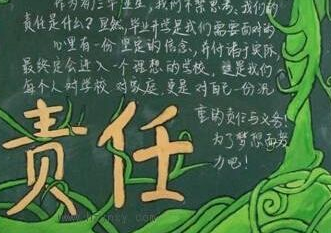 作为初三毕业生,我们不禁思考:我们的
责任是什么?显然,毕业升学是我们需要面对的
心里有一份坚定的信念,并付诸于实际,
最终定会进入一个理想的学校,这是我们
每个人对学校 对家庭,更是 对自己一份沉
重的责任与义务!
为了梦想而努
力吧!
责任